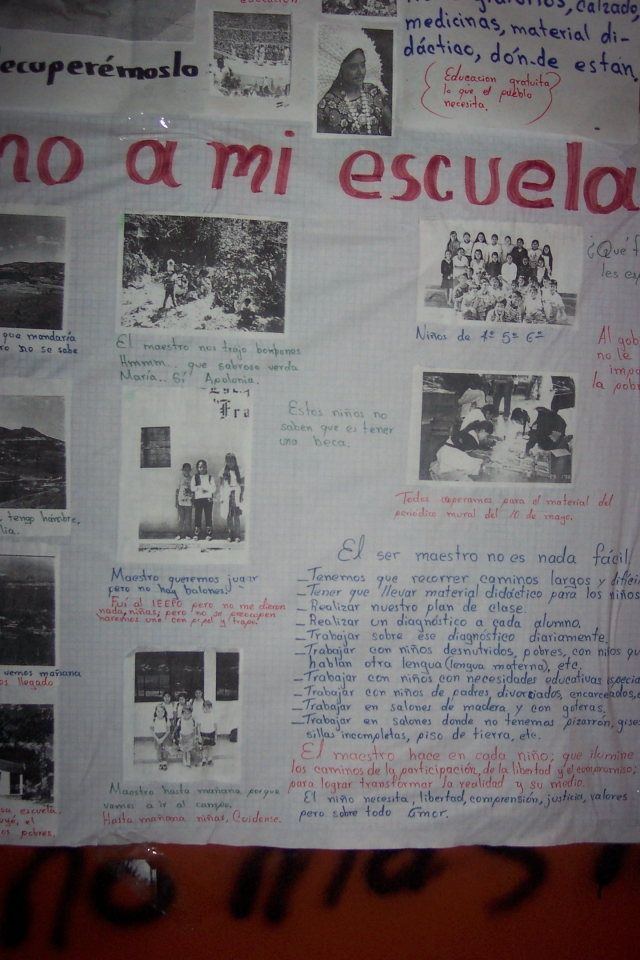 educacion
calzado,
medicinas, material di-
dáctico, dón-de están
Educacion gratuita
lo que el pueblo
necesita.
ecuperémoslo
no a mi escuela
que mandaría
ro no se sabe
El maestro nos trajo bonbones
Hmmm... que sabroso verda
María.. Sí Apolonia.
Niños de 4º 5º 6º
¿Qué f
les ex
Al gob
no le
impo
la pobr
Fra
Estos niños no
saben que es tener
una beca.
tengo hambre,
lia..
Todos coperamos para el material del
periodico mural del 10 de mayo.
Maestro queremos jugar
pero no hay balones
Fui al IEEPO pero no me dieron
nada, niñas, pero no se preocupen
haremos uno con papel y trapo.
El ser maestro no es nada fácil
_Tenemos que recorrer caminos largos y dificil
_Tener que llevar material didáctico para los niños
_Realizar nuestro plan de clase.
_Realizar un diagnóstico a cada alumno.
_Trabajar sobre ese diagnóstico diariamente.
_Trabajar con niños desnutridos, pobres, con niños qu
hablan otra lengua (lengua materna), etc.
_Trabajar con niños con necesidades educativas especia
_Trabajar con niños de padres, divorciados, encarcelados,
_Trabajar en salones de madera y con goteras.
_Trabajar en salones donde no tenemos pizarrón, gises
sillas incompletas, piso de tierra, etc.
vemos mañana
os llegado
El maestro hace en cada niño; que ilumine
los caminos de la participación, de la libertad y el compromiso;
para lograr transformar la realidad y su medio.
El niño necesita, libertad, comprensión, justicia, valores
pero sobre todo Amor.
Maestro hasta mañana porque
vamos a ir al campo.
Hasta mañana niñas, Cuidense.
sa escuela
uyó, el
os pobres.
no mas